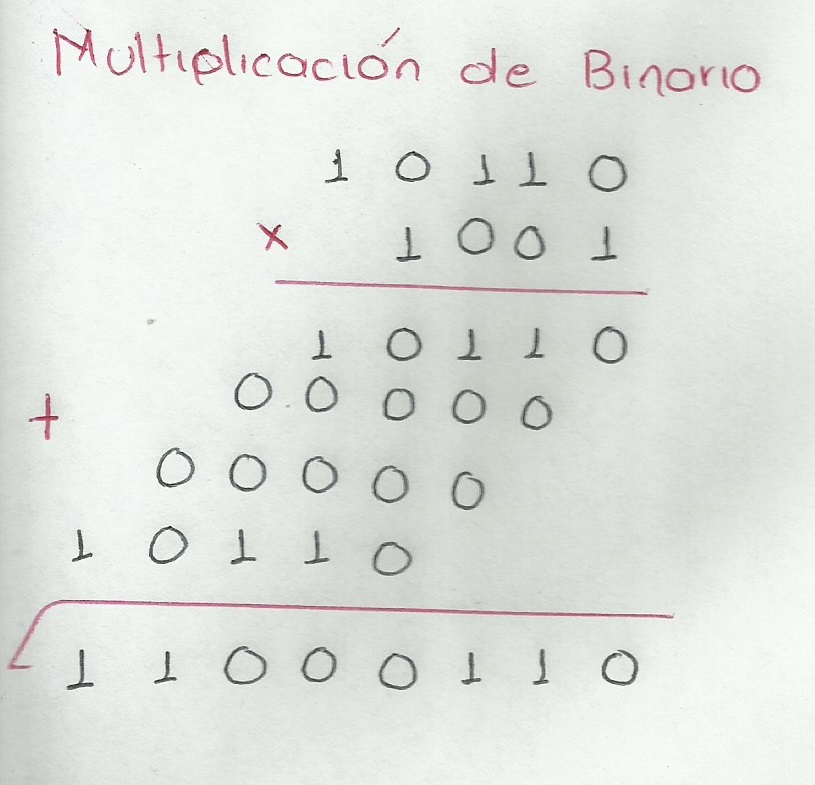 Multiplicación de Binario
1 0 1 1 0
x 1 0 0 1
1 0 1 1 0
+ 0 0 0 0 0
0 0 0 0 0
1 0 1 1 0
1 1 0 0 0 1 1 0